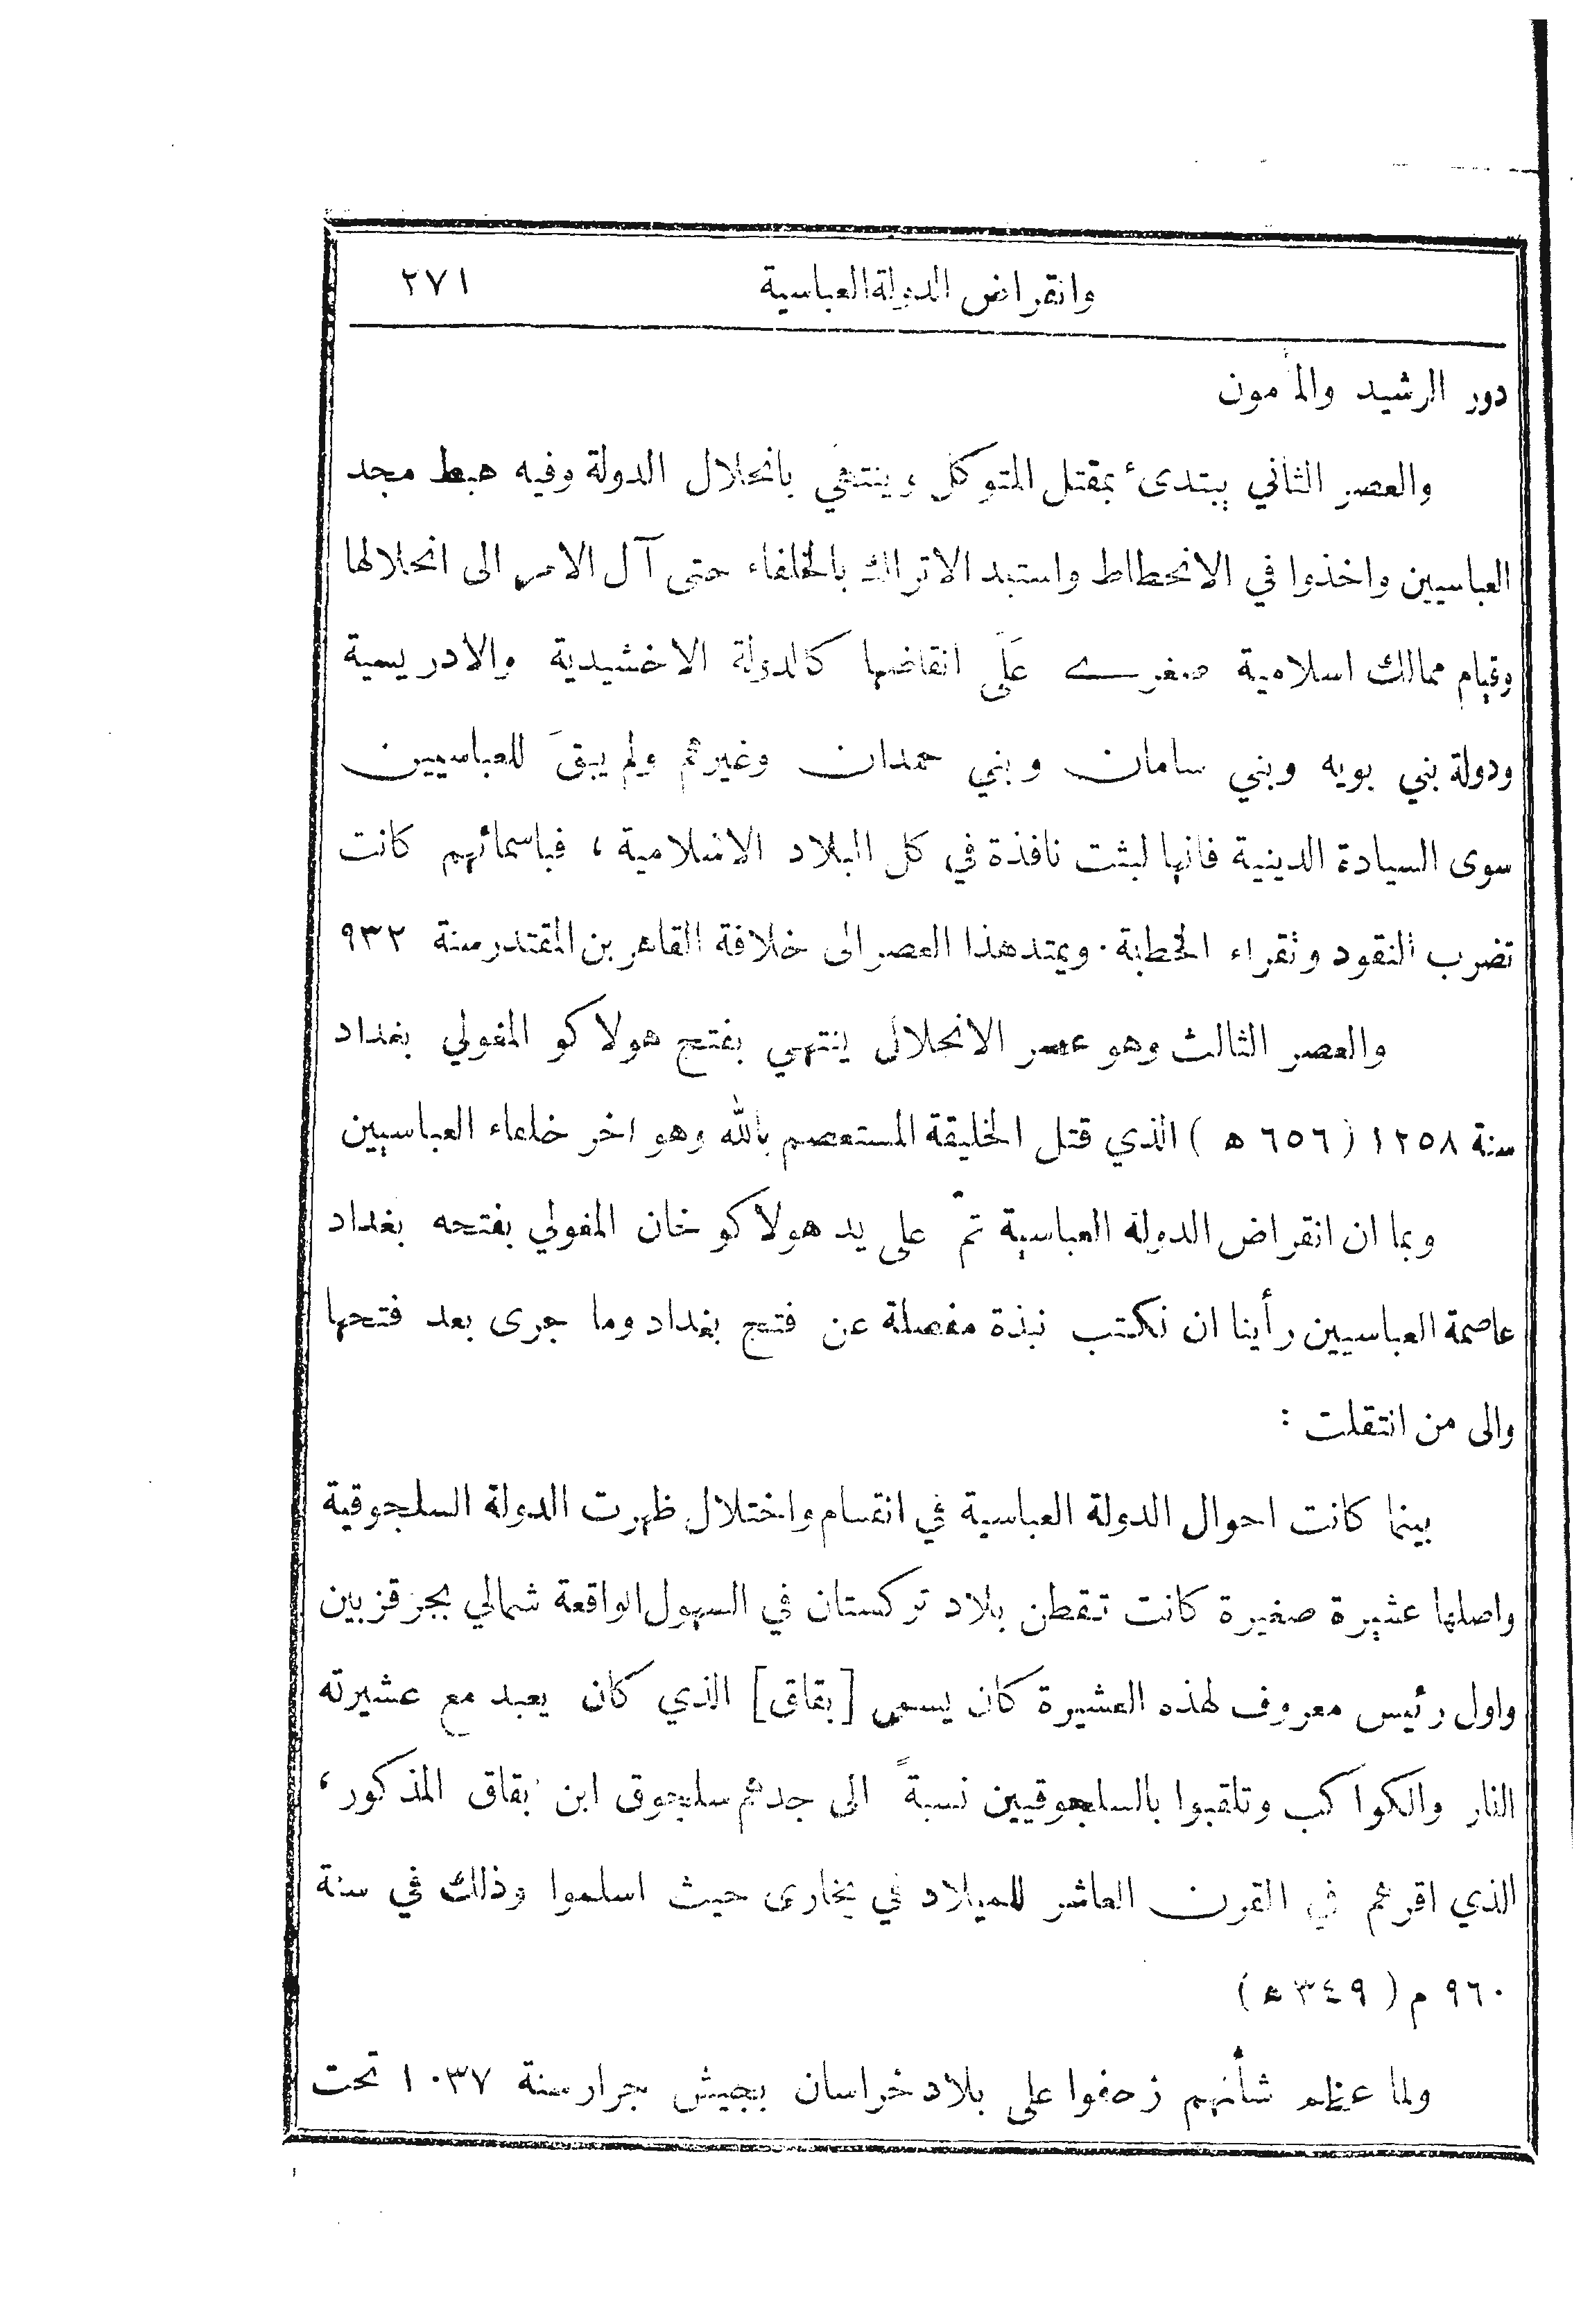 وانقراض الدولة العباسية ٢٧١
دور الرشيد والمأمون
والعصر الثاني يبتدئ بمقتل المتوكل وينتهي بانحلال الدولة وفيه هبط مجد
العباسيين واخذوا في الانحطاط واستبد الاتراك بالخلفاء حتى آل الامر الى انحلالها
وقيام ممالك اسلامية صغرى عَلَى انقاضها كالدولة الاخشيدية والادريسية
ودولة بني بويه وبني سامان وبني حمدان وغيرهم ولم يبقَ للعباسيين
سوى السيادة الدينية فانها لبثت نافذة في كل البلاد الاسلامية ، فباسمائهم كانت
تضرب النقود وتقراء الخطبة . ويمتد هذا العصر الى خلافة القاهر بن المقتدر سنة ٩٣٢
والعصر الثالث وهو عصر الانحلال ينتهي بفتح هولاكو المغولي بغداد
سنة ١٢٥٨ ( ٦٥٦ ه ) الذي قتل الخليفة المستعصم بالله وهو اخر خلفاء العباسيين
وبما ان انقراض الدولة العباسية تمّ على يد هولاكو خان المغولي بفتحه بغداد
عاصمة العباسيين رأينا ان نكتب نبذة مفصلة عن فتح بغداد وما جرى بعد فتحها
والى من انتقلت :
بينما كانت احوال الدولة العباسية في انقسام واختلال ظهرت الدولة السلجوقية
واصلها عشيرة صغيرة كانت تقطن بلاد تركستان في السهول الواقعة شمالي بحر قزبين
واول رئيس معروف لهذه العشيرة كان يسمى [بقاق] الذي كان يعبد مع عشيرته
النار والكواكب وتلقبوا بالسلجوقيين نسبةً الى جدهم سلجوق ابن بقاق المذكور ،
الذي اقرهم في القرن العاشر للميلاد في بخارى حيث اسلموا وذلك في سنة
٩٦٠ م ( ٣٤٩ ه )
ولما عظم شأنهم زحفوا على بلاد خراسان بجيش جرار سنة ١٠٣٧ تحت